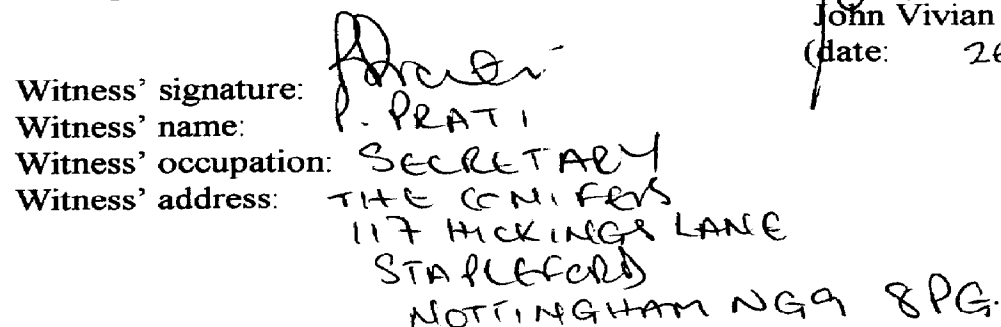 John Vivian
(date: 26
Witness' signature:
Witness' name: P. PRATI
Witness' occupation: SECRETARY
Witness' address: THE CONIFERS
117 HICKINGS LANE
STAPLEFORD
NOTTINGHAM NG9 8PG.